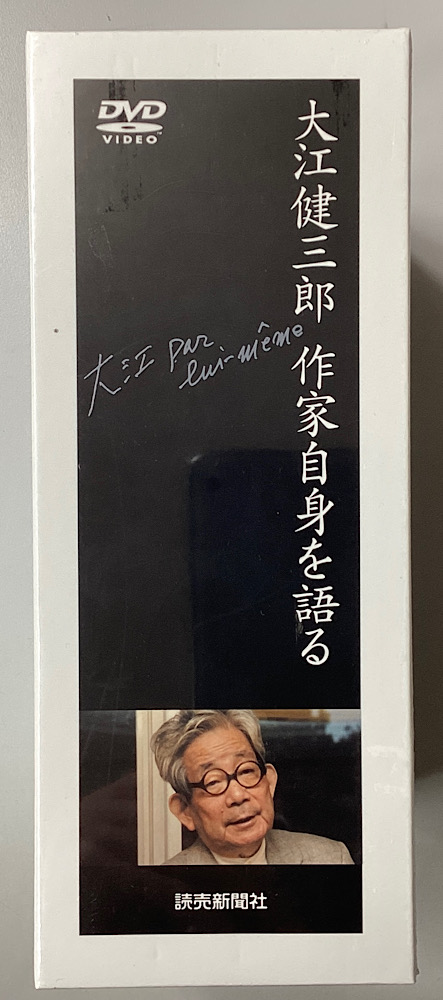 DVD
VIDEO
大江健三郎 作家自身を語る
大江 par
lui-même
読売新聞社